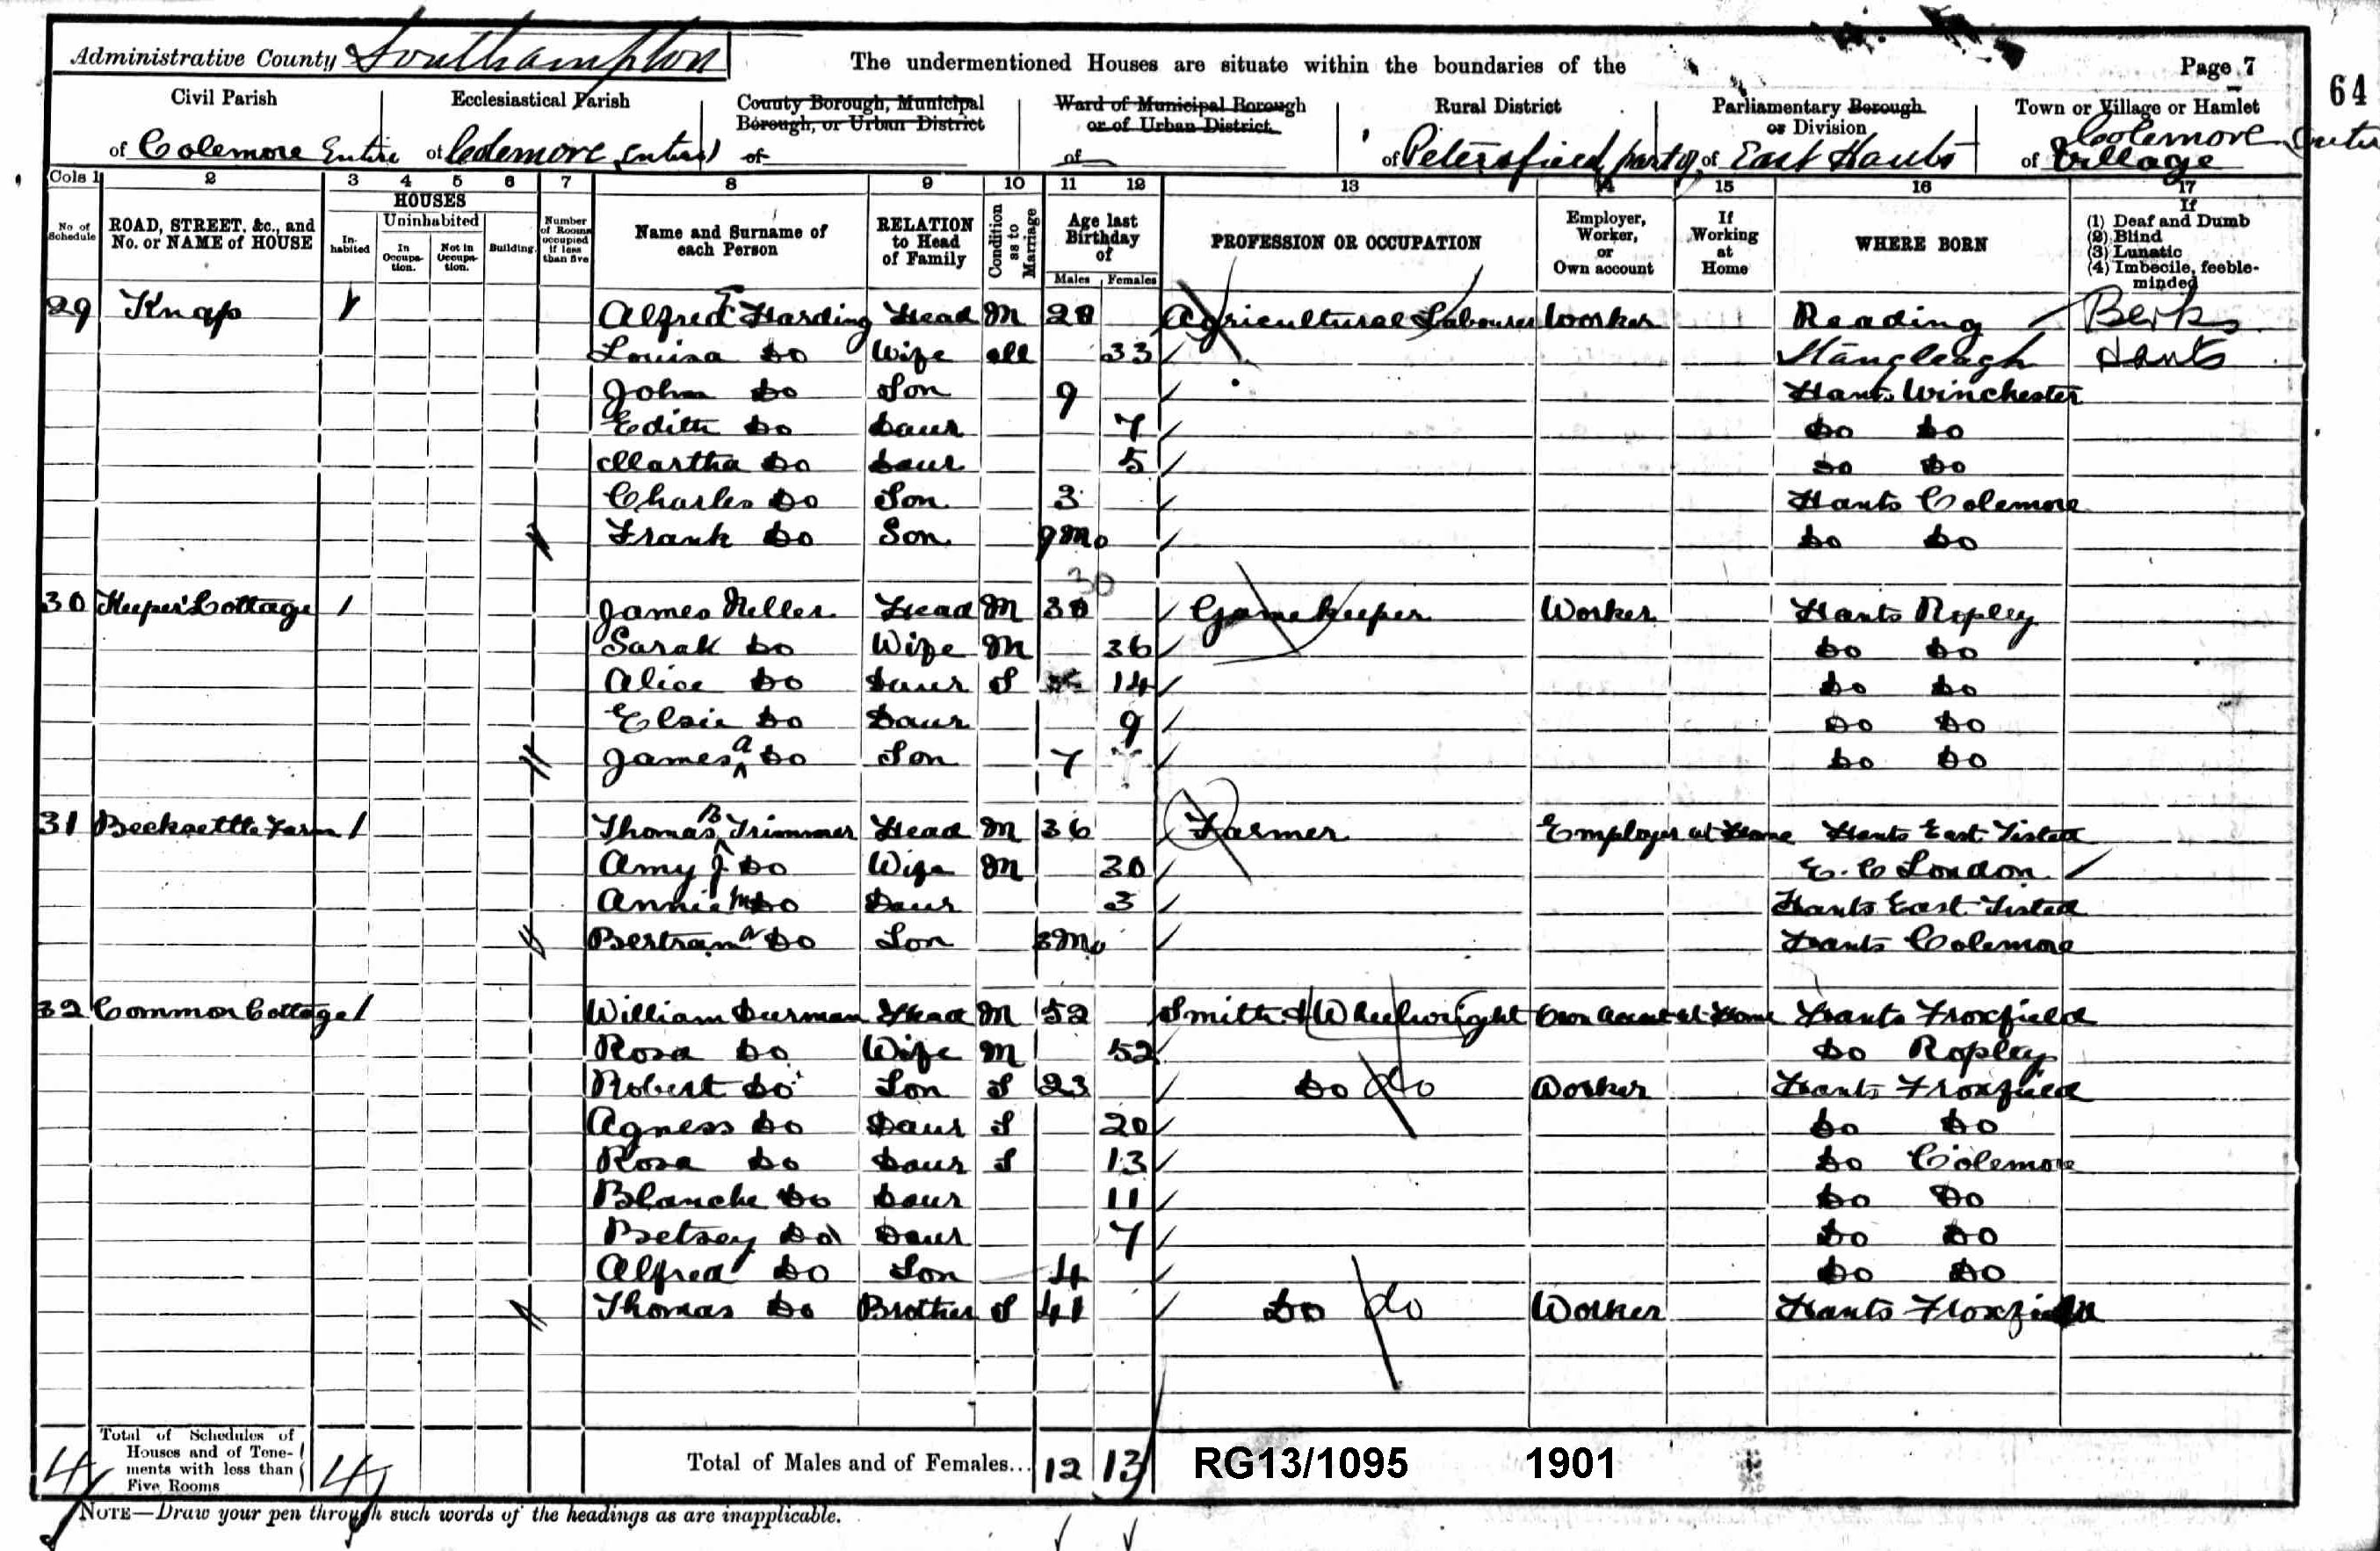 Administrative County Southampton
The undermentioned Houses are situate within the boundaries of the
Page 7
64
Civil Parish of Colemore Entire
Ecclesiastical Parish of Colemore Entire
County Borough, Municipal Borough, or Urban District of
Ward of Municipal Borough or of Urban District of
Rural District of Petersfield part of
Parliamentary Borough or Division of East Hants
Town or Village or Hamlet of Colemore Village
Cols 1 2 3 4 5 6 7 8 9 10 11 12 13 14 15 16 17
No of Schedule
ROAD, STREET, &c., and No. or NAME of HOUSE
HOUSES
Inhabited
Uninhabited
In Occupation.
Not in Occupation.
Building.
Number of Rooms occupied if less than five
Name and Surname of each Person
RELATION to Head of Family
Condition as to Marriage
Age last Birthday of
Males Females
PROFESSION OR OCCUPATION
Employer, Worker, or Own account
If Working at Home
WHERE BORN
If
(1) Deaf and Dumb
(2) Blind
(3) Lunatic
(4) Imbecile, feeble-minded
29 Knap 1 Alfred F Harding Head M 28 Agricultural Labourer Worker Reading Berks
Louisa Do Wife M 33 Hants
John Do Son 9 Hants Winchester
Edith Do Daur 7 Do Do
Martha Do Daur 5 Do Do
Charles Do Son 3 Hants Colemore
Frank Do Son 9 Mo Do Do
30
30 Keepers Cottage 1 James Head M 30 Gamekeeper Worker Hants Ropley
Sarah Do Wife M 36 Do Do
Alice Do Daur S 14 Do Do
Elsie Do Daur 9 Do Do
James A Do Son 7 Do Do
31 Farm 1 Thomas B Trimmer Head M 36 Farmer Employer at Home Hants East Tisted
Amy J Do Wife M 30 E. C London
Annie M Do Daur 3 Hants East Tisted
Bertram A Do Son 3 Mo Hants Colemore
32 Common Cottage 1 William Durman Head M 52 Smith & Wheelwright Own Account at Home Hants Froxfield
Rosa Do Wife M 52 Do Ropley
Robert Do Son S 23 Do do Worker Hants Froxfield
Agness Do Daur S 20 Do Do
Rosa Do Daur S 13 Do Colemore
Blanche Do Daur 11 Do Do
Betsey Do Daur 7 Do Do
Alfred Do Son 4 Do Do
Thomas Do Brother S 41 Do do Worker Hants Froxfield
4 Total of Schedules of Houses and of Tenements with less than Five Rooms 4
Total of Males and of Females... 12 13
RG13/1095 1901
NOTE—Draw your pen through such words of the headings as are inapplicable.